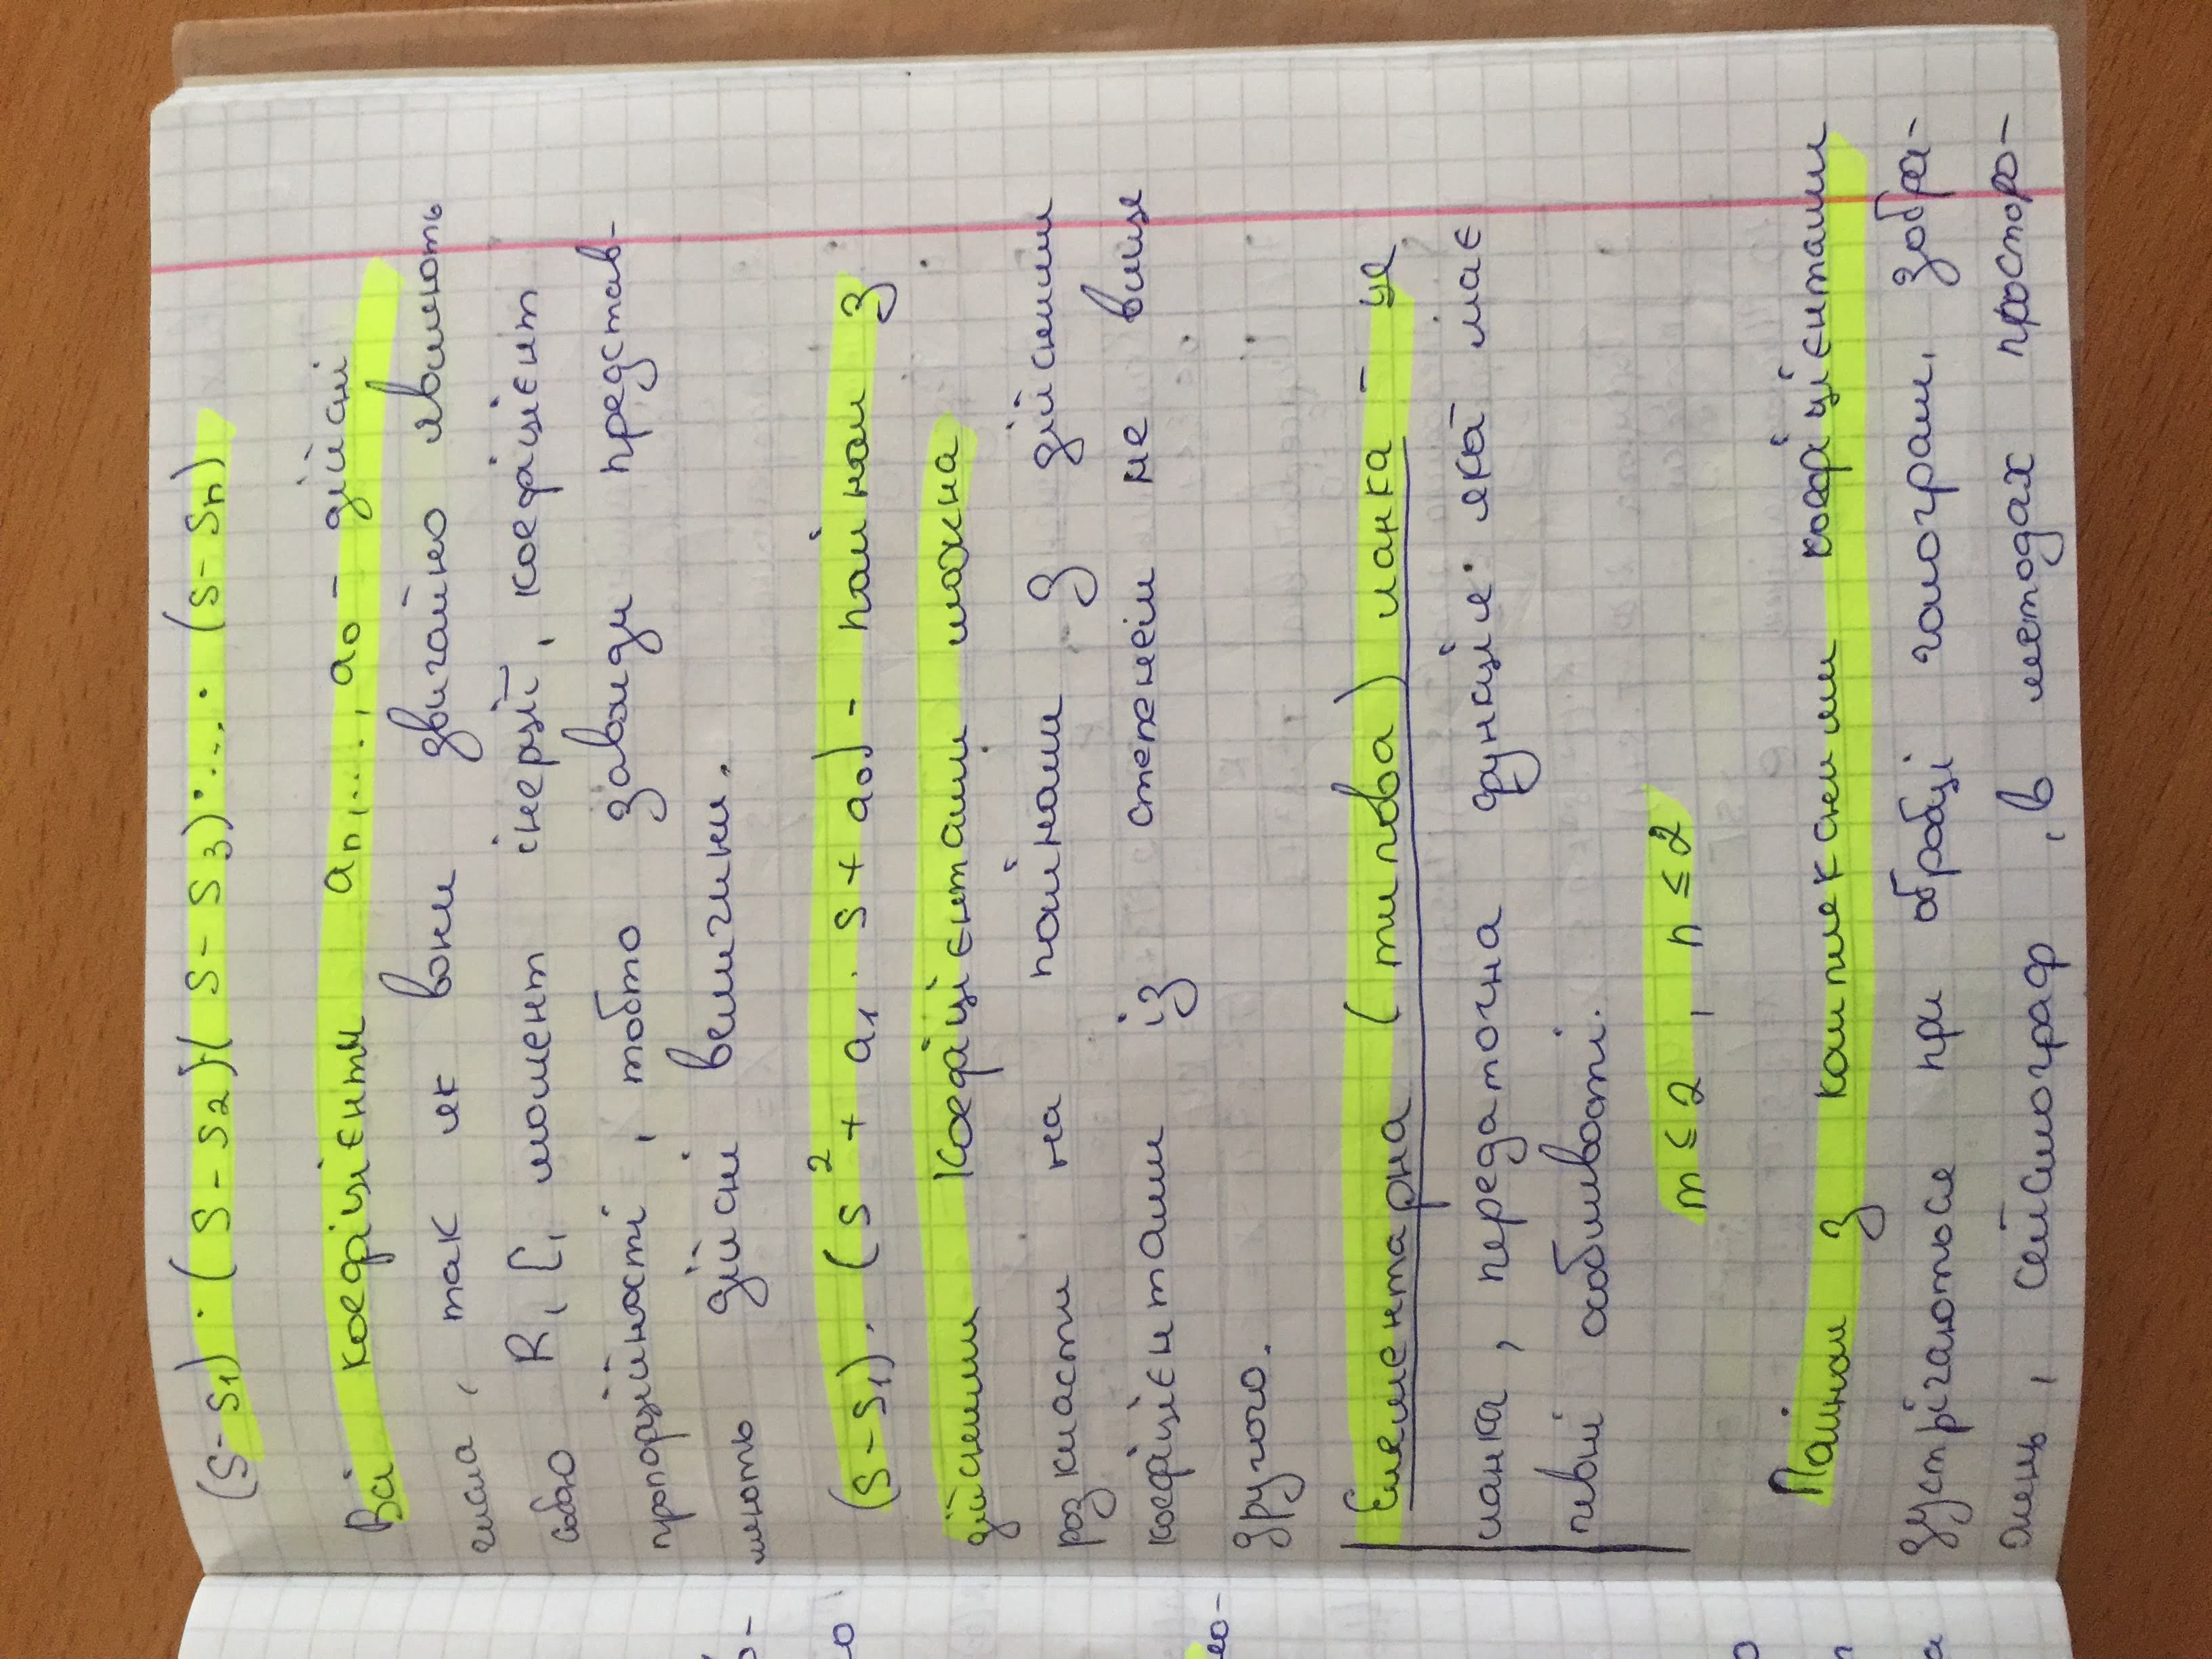 (S-S₁)·(S-S₂)·(S-S₃)·...·(S-Sn)
Всі коефіцієнти an,..., a₀ - дійсні
числа, так як вони звичайно являють
собою R, C, момент інерції, коефіцієнт
пропорційності, тобто завжди представ-
ляють дійсні величини.
(S-S₁)·(S²+a₁·S+a₀) - поліном з
дійсними коефіцієнтами можна
розкласти на поліноми з дійсними
коефіцієнтами із степенем не вище
другого.
Елементарна (типова) ланка - це
ланка, передаточна функція якої має
певні особливості.
m≤2, n≤2
Поліном з комплексними коефіцієнтами
зустрічаються при обробці голограм, зобра-
жень, сейсмограф, в методах просторо-